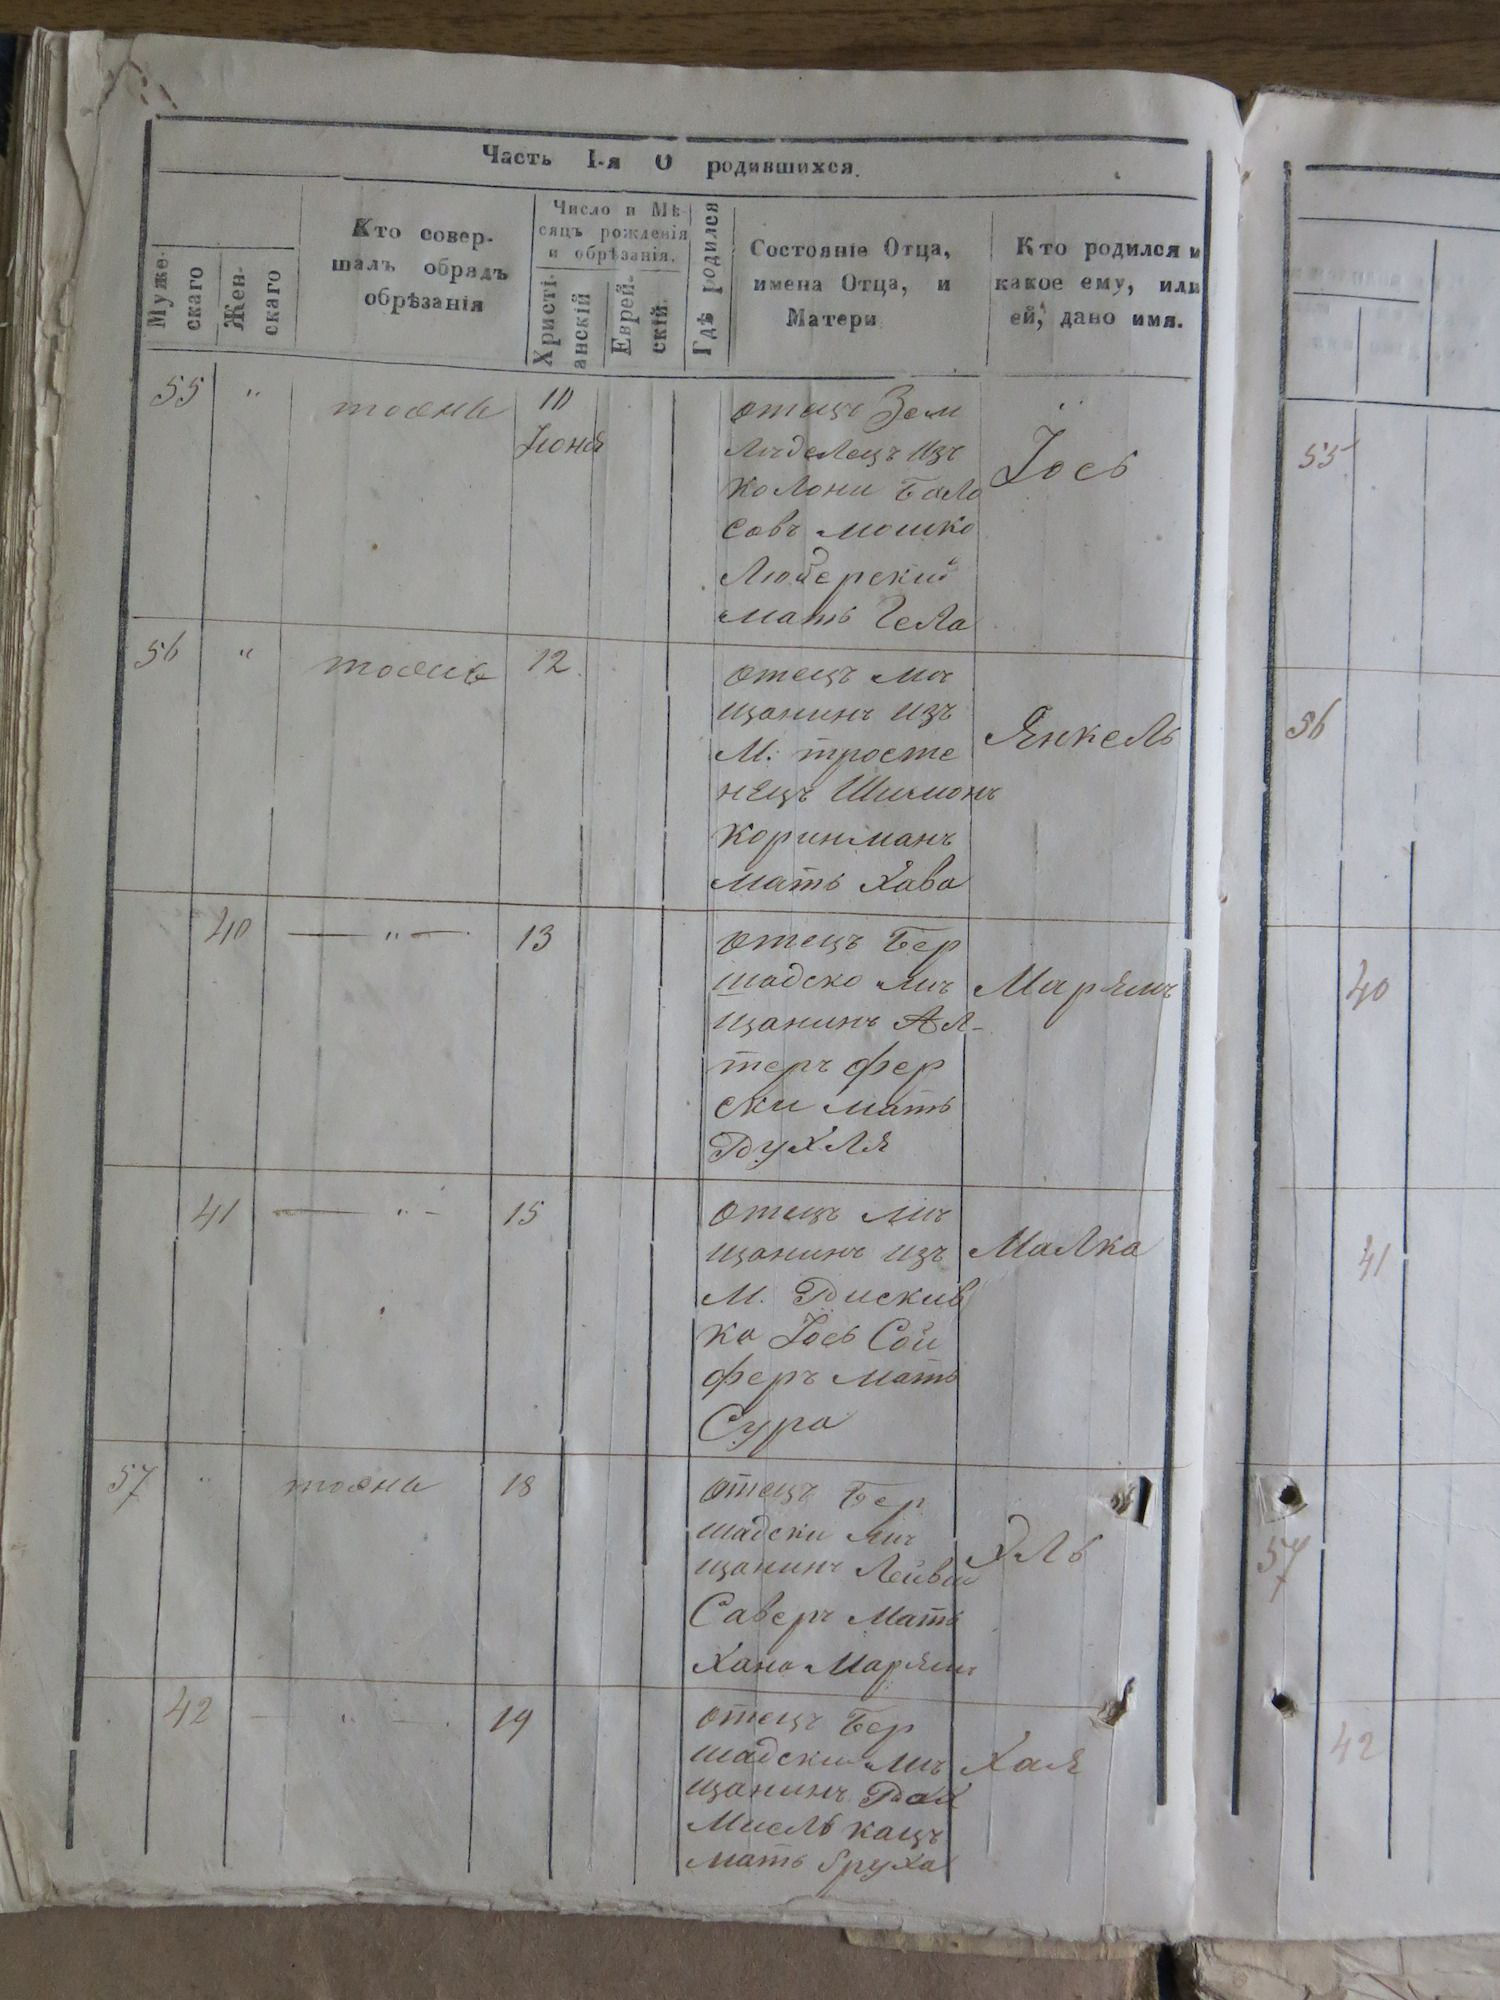 Часть I-я О родившихся.
Мужескаго
Женскаго
Кто совер-
шалъ обрядъ
обрѣзанія
Число и Мѣ-
сяцъ рожденія
и обрѣзанія.
Христі-
анскій
Еврей-
скій.
Гдѣ родился
Состояніе Отца,
имена Отца, и
Матери
Кто родился и
какое ему, или
ей, дано имя.
55 "
10
Іюня
отецъ Зем
лѣделецъ изъ
колони Бало
совъ Мошко
Люберский
мать Геля
Іось
56 "
12
отецъ мѣ
щанинъ изъ
М. тросте
нецъ Шимонъ
Коринманъ
мать Хава
Янкель
40 — " — 13
отецъ Бер
шадско мѣ
щанинъ Ал-
теръ фер
ски мать
Рухля
Марямъ
41 — " — 15
отецъ мѣ
щанинъ изъ
М. Пискив
ка Іось Сой
феръ мать
Сура
Малка
57 "
18
отецъ Бер
шадски мѣ
щанинъ Лейвий
Саверъ Мать
Хана Марямъ
Эль
42 — " — 19
отецъ Бер
шадски мѣ
щанинъ
Кацъ
мать Бруха
Хая
55
56
40
41
57
42